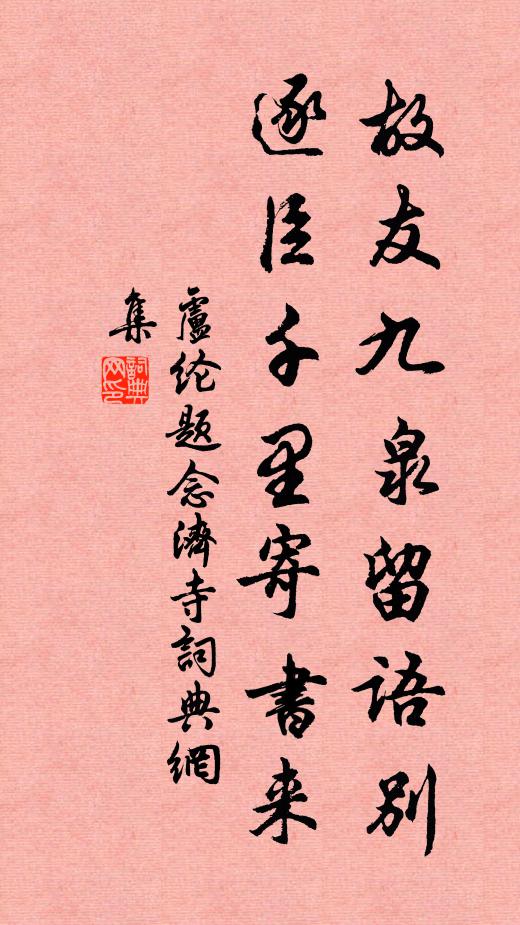 故友九泉留语别
逐臣千里寄书来
盧纶题念濟寺詞典網
集
詞典网印